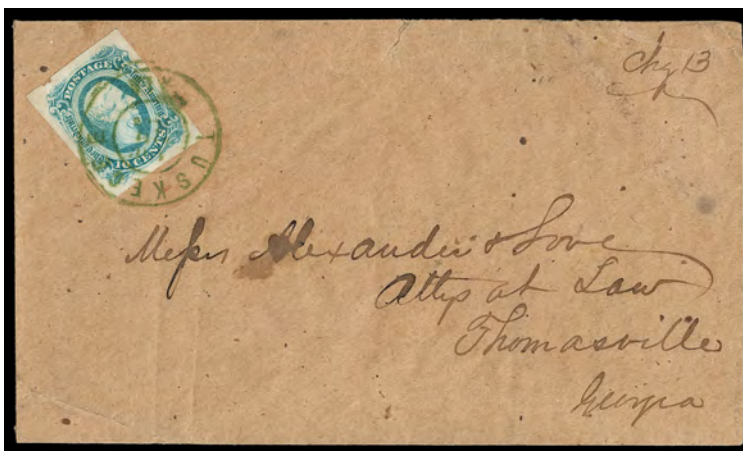 Chg 13
POSTAGE
10 CENTS
TUSKE
Messrs Alexander & Love
Attys at Law
Thomasville
Georgia